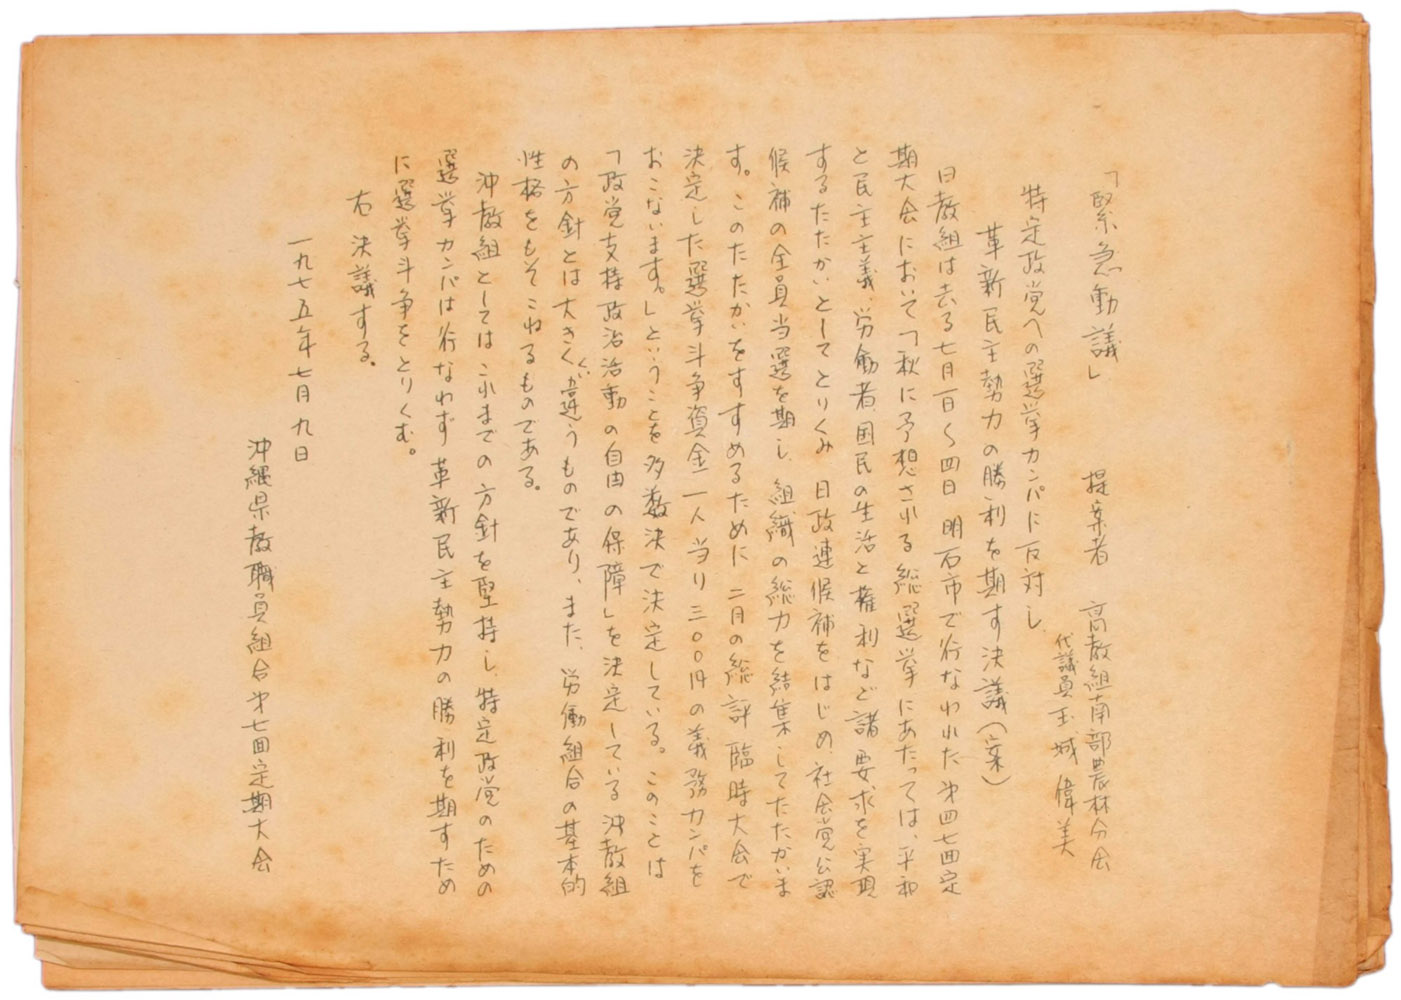 「緊急動議」　提案者　高教組南部農林分会
代議員 玉城偉美
特定政党への選挙カンパに反対し、
革新民主勢力の勝利を期す決議（案）
日教組は去る七月一日〜四日 明石市で行なわれた第四七回定
期大会において「秋に予想される総選挙にあたっては、平和
と民主主義、労働者、国民の生活と権利など諸要求を実現
するたたかいとしてとりくみ 日政連候補をはじめ、社会党公認
候補の全員当選を期し、組織の総力を結集してたたかいま
す。このたたかいをすすめるために 二月の総評臨時大会で
決定した選挙斗争資金一人当り三〇〇円の義務カンパを
おこないます。」ということを多数決で決定している。このことは
「政党支持政治活動の自由の保障」を決定している沖教組
の方針とは大きくくい違うものであり、また、労働組合の基本的
性格をもそこねるものである。
沖教組としてはこれまでの方針を堅持し、特定政党のための
選挙カンパは行なわず 革新民主勢力の勝利を期すため
に選挙斗争をとりくむ。
右 決議する。
一九七五年七月九日
沖縄県教職員組合第七回定期大会